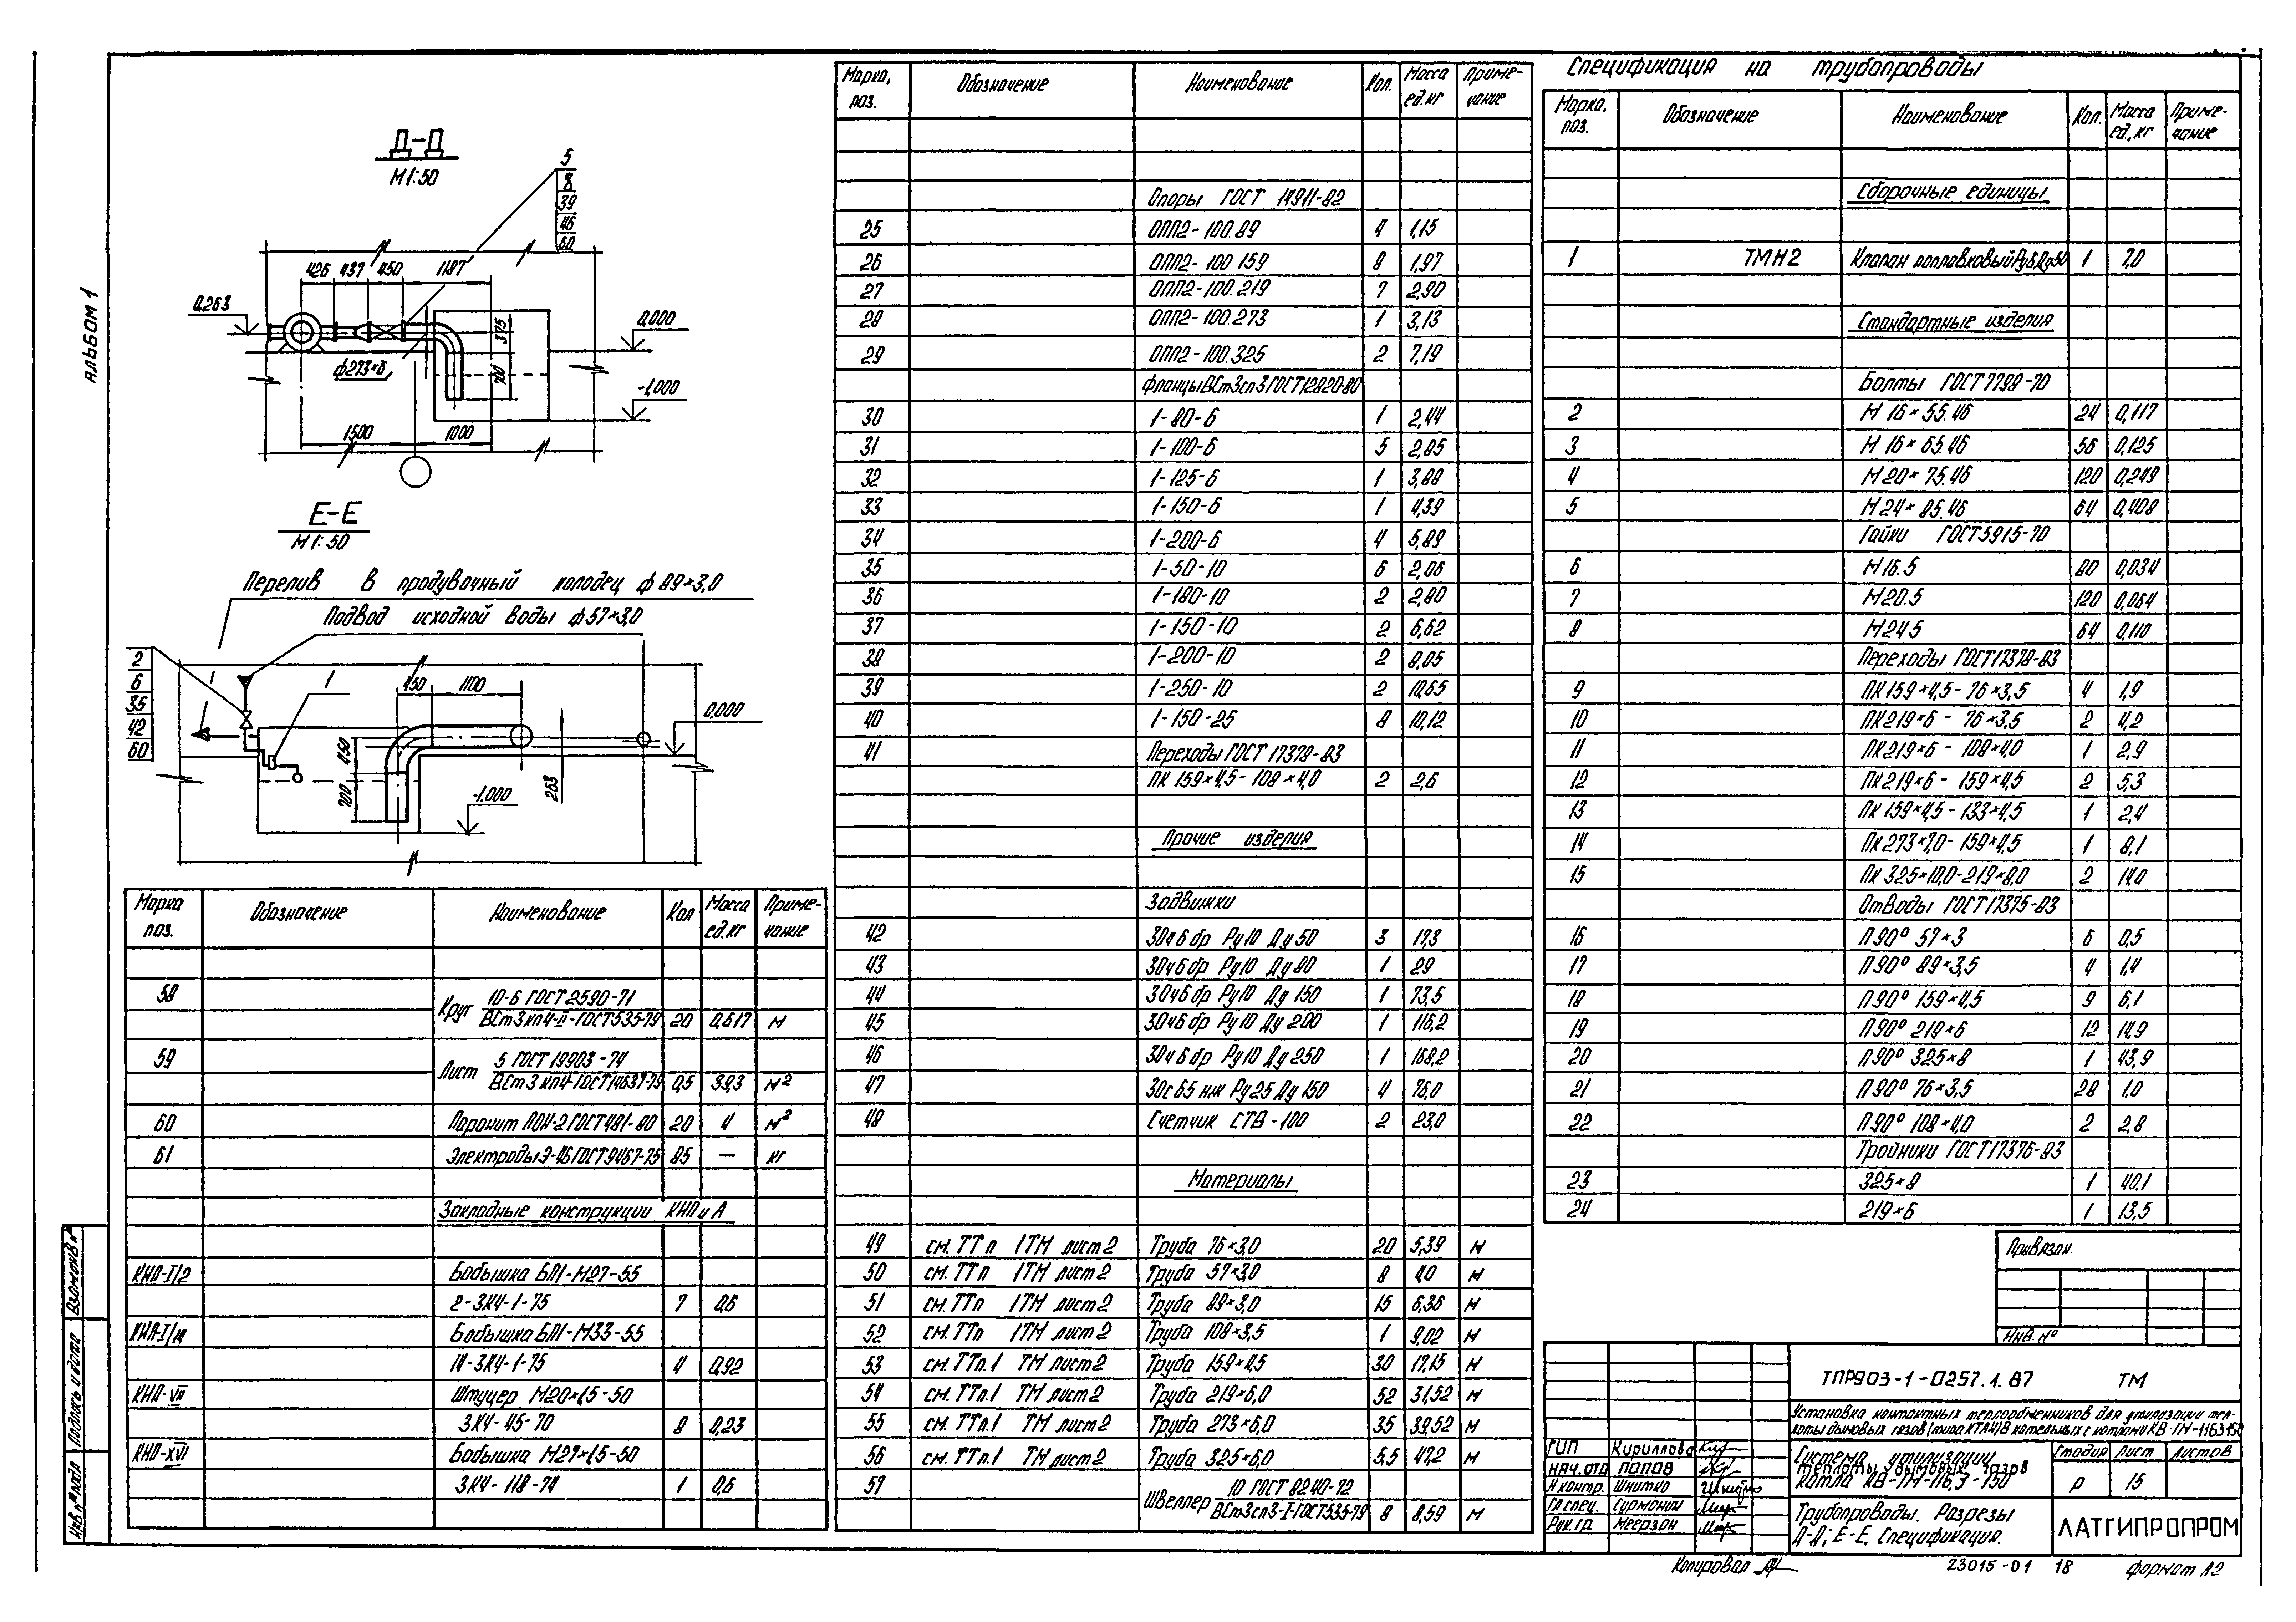 АЛЬБОМ 1
Д-Д
М 1:50
5
8
39
46
60
426 437 450 1187
0,263
0,000
375
ф273×6
700
-1,000
1500 1000
Е-Е
М 1:50
Перелив в продувочный колодец ф 89×3,0
Подвод исходной воды ф 57×3,0
2
6
35
42
60
1
1
450 1100
0,000
450
700
263
-1,000
Марка поз. Обозначение Наименование Кол Масса ед.кг Приме-чание
58 Круг 10-6 ГОСТ 2590-71
ВСт3кп4-II-ГОСТ535-79 20 0,617 м
59 Лист 5 ГОСТ 19903-74
ВСт3кп4-ГОСТ14637-79 0,5 39,3 м²
60 Паронит ПОН-2 ГОСТ481-80 20 4 м²
61 Электроды Э-46 ГОСТ9467-75 85 — кг
Закладные конструкции КИП и А
КИП-I/2 Бобышка БП1-М27-55
2-ЗК4-1-75 7 0,6
КИП-I/14 Бобышка БП1-М33-55
14-ЗК4-1-75 4 0,92
КИП-VII Штуцер М20×1,5-50
ЗК4-45-70 8 0,23
КИП-XVI Бобышка М27×1,5-50
ЗК4-118-74 1 0,6
Марка, поз. Обозначение Наименование Кол. Масса ед.кг Приме-чание
Опоры ГОСТ 14911-82
25 ОПП2-100.89 4 1,15
26 ОПП2-100 159 8 1,97
27 ОПП2-100.219 7 2,90
28 ОПП2-100.273 1 3,13
29 ОПП2-100.325 2 7,19
Фланцы ВСт3сп3 ГОСТ12820-80
30 1-80-6 1 2,44
31 1-100-6 5 2,85
32 1-125-6 1 3,88
33 1-150-6 1 4,39
34 1-200-6 4 5,89
35 1-50-10 6 2,06
36 1-180-10 2 2,80
37 1-150-10 2 6,62
38 1-200-10 2 8,05
39 1-250-10 2 10,65
40 1-150-25 8 10,12
41 Переходы ГОСТ 17378-83
ПК 159×4,5-108×4,0 2 2,6
Прочие изделия
Задвижки
42 30ч6бр Ру10 Ду50 3 17,3
43 30ч6бр Ру10 Ду80 1 29
44 30ч6бр Ру10 Ду150 1 73,5
45 30ч6бр Ру10 Ду200 1 116,2
46 30ч6бр Ру10 Ду250 1 168,2
47 30с65нж Ру25 Ду150 4 76,0
48 Счетчик СТВ-100 2 23,0
Материалы
49 см. ТТп 1ТМ лист 2 Труба 76×3,0 20 5,39 м
50 см. ТТп 1ТМ лист 2 Труба 57×3,0 8 4,0 м
51 см. ТТп 1ТМ лист 2 Труба 89×3,0 15 6,36 м
52 см. ТТп 1ТМ лист 2 Труба 108×3,5 1 9,02 м
53 см. ТТп.1 ТМ лист 2 Труба 159×4,5 30 17,15 м
54 см. ТТп.1 ТМ лист 2 Труба 219×6,0 52 31,52 м
55 см. ТТп.1 ТМ лист 2 Труба 273×6,0 35 39,52 м
56 см. ТТп.1 ТМ лист 2 Труба 325×6,0 5,5 47,2 м
57 Швеллер 10 ГОСТ 8240-72
ВСт3сп3-I-ГОСТ535-79 8 8,59 м
Спецификация на трубопроводы
Марка, поз. Обозначение Наименование Кол. Масса ед.,кг Приме-чание
Сборочные единицы
1 ТМН2 Клапан поплавковый Ру6,Ду50 1 7,0
Стандартные изделия
Болты ГОСТ7798-70
2 М 16×55.46 24 0,117
3 М 16×65.46 56 0,125
4 М20×75.46 120 0,249
5 М24×85.46 64 0,408
Гайки ГОСТ5915-70
6 М16.5 80 0,034
7 М20.5 120 0,064
8 М24 5 64 0,110
Переходы ГОСТ17378-83
9 ПК159×4,5-76×3,5 4 1,9
10 ПК219×6-76×3,5 2 4,2
11 ПК219×6-108×4,0 1 2,9
12 ПК219×6-159×4,5 2 5,3
13 ПК159×4,5-133×4,5 1 2,4
14 ПК273×7,0-159×4,5 1 8,1
15 ПК325×10,0-219×8,0 2 14,0
Отводы ГОСТ17375-83
16 П90° 57×3 6 0,5
17 П90° 89×3,5 4 1,4
18 П90° 159×4,5 9 6,1
19 П90° 219×6 12 14,9
20 П90° 325×8 1 43,9
21 П90° 76×3,5 28 1,0
22 П90° 108×4,0 2 2,8
Тройники ГОСТ17376-83
23 325×8 1 40,1
24 219×6 1 13,5
Привязан.
Инв. №
ТПР903-1-0257.1.87 ТМ
Установка контактных теплообменников для утилизации теп-
лоты дымовых газов (типа КТАН) в котельных с котлами КВ-ГМ-116,3-150
Система утилизации
теплоты дымовых газов
котла КВ-ГМ-116,3-150
Стадия Лист Листов
р 15
Трубопроводы. Разрезы
Д-Д; Е-Е. Спецификация.
ЛАТГИПРОПРОМ
ГИП Кириллова
нач.отд Попов
Н контр. Шнитко
Гл спец. Сурмонин
Рук.гр. Меерзон
Взам.инв №
Подпись и дата
Инв.№ подл
Копировал
23015-01 18
формат А2